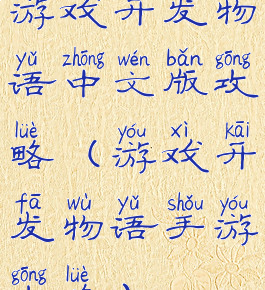 游戏开发物
yǔ zhōng wén bǎn gōng
语中文版攻
lüè yóu xì kāi
略（游戏开
fā wù yǔ shǒu yóu
发物语手游
gōng lüè